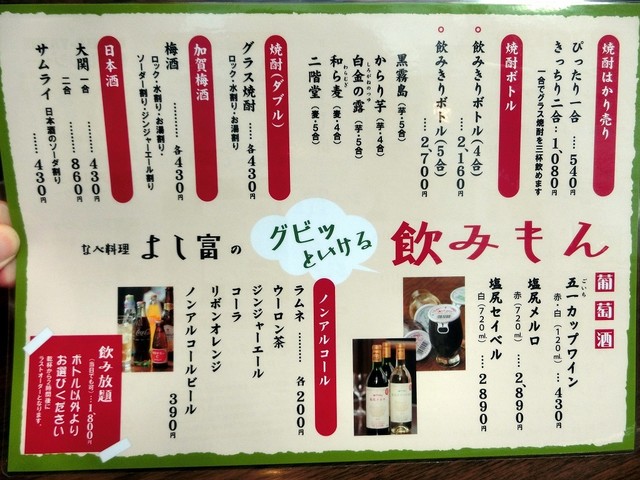 焼酎はかり売り
ぴったり一合 …… 540円
きっちり二合 … 1,080円
一合でグラス焼酎を三杯飲めます
焼酎ボトル
飲みきりボトル(4合)
…… 2,160円
飲みきりボトル(5合)
…… 2,700円
黒霧島(芋・5合)
からり芋(芋・4合)
しろがねのつゆ
白金の露(芋・5合)
わらむぎ
和ら麦(麦・4合)
二階堂(麦・5合)
焼酎(ダブル)
グラス焼酎 …… 各430円
ロック・水割り・お湯割り
加賀梅酒
梅酒 ……… 各430円
ロック・水割り・お湯割り・
ソーダー割り・ジンジャーエール割り
日本酒
大関 一合 ……… 430円
二合 ……… 860円
サムライ 日本酒のソーダ割り
…… 430円
なべ料理 よし富の
グビッ
といける
飲みもん
葡萄酒
ごいち
五一カップワイン
赤・白(120㎖) … 430円
塩尻メルロ
赤(720㎖) … 2,890円
塩尻セイベル
白(720㎖) … 2890円
ノンアルコール
ラムネ ……… 各200円
ウーロン茶
ジンジャーエール
コーラ
リボンオレンジ
ノンアルコールビール
390円
飲み放題
(当日でも可) … 1,800円
ボトル以外より
お選びください
乾杯から2時間後に
ラストオーダーとなります。